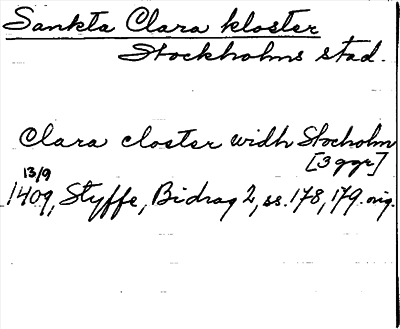 Sankta Clara kloster
Stockholms stad.
Clara closter widh Stocholm
[3 ggr]
13/9
1409, Styffe, Bidrag 2, ss. 178, 179. orig.